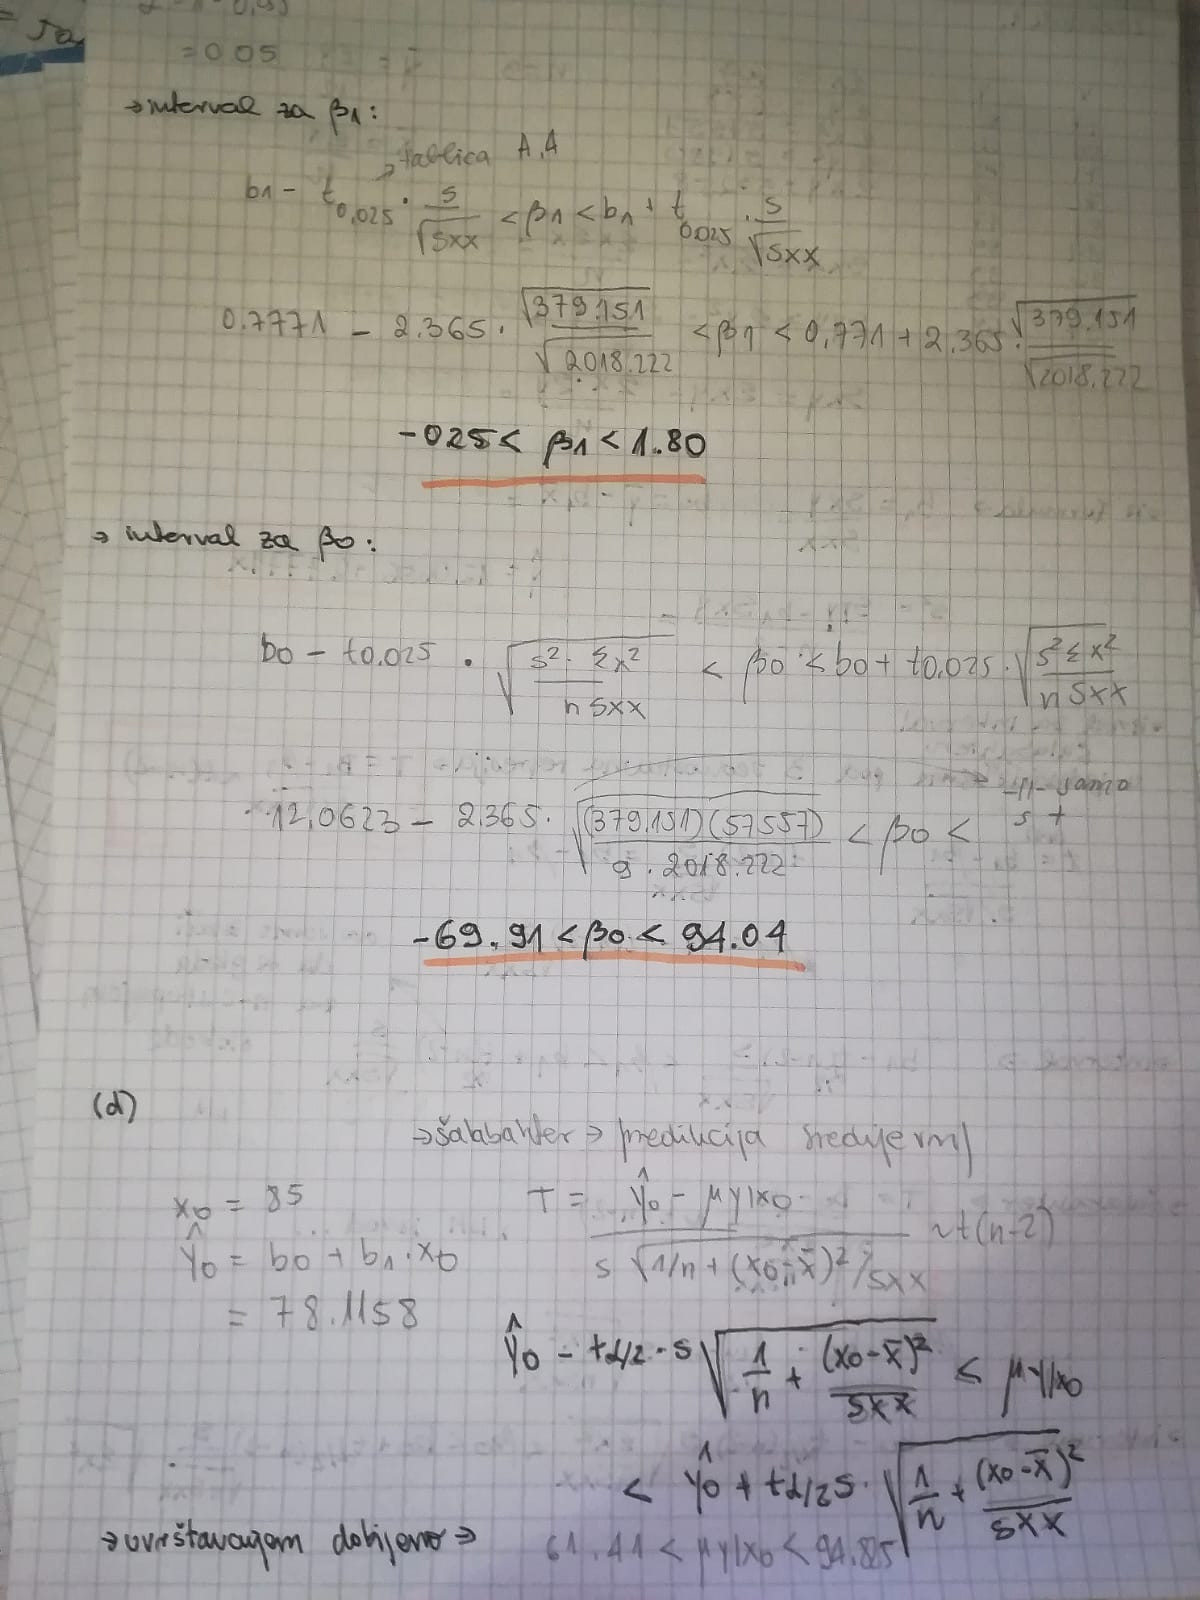 = 0.05
→ interval za β1:
→ tablica A.4
b1 - t0,025 · s/√Sxx < β1 < b1 + t0,025 · s/√Sxx
0.7771 - 2.365 · √379.151/√2018.222 < β1 < 0,771 + 2.365 · √379.151/√2018.222
-025 < β1 < 1.80
→ interval za β0:
b0 - t0,025 · √(s² · Σx²/nSxx) < β0 < b0 + t0,025 · √(s²Σx²/nSxx)
12,0623 - 2.365 · √((379,151)(57557)/9 · 2018.222) < β0 < -11- samo s +
-69.91 < β0 < 94.04
(d)
→ šalabahter → predikcija srednje vrij
x0 = 85
T = ŷ0 - μy|x0/s√1/n + (x0 - x̄)²/Sxx ~ t(n-2)
ŷ0 = b0 + b1 · x0
= 78.1158
ŷ0 - tα/2 · s√(1/n + (x0 - x̄)²/Sxx) < μy|x0
< ŷ0 + tα/2 s · √(1/n + (x0 - x̄)²/Sxx)
→ uvrštavanjem dobijemo ⇒ 61.41 < μy|x0 < 94.825